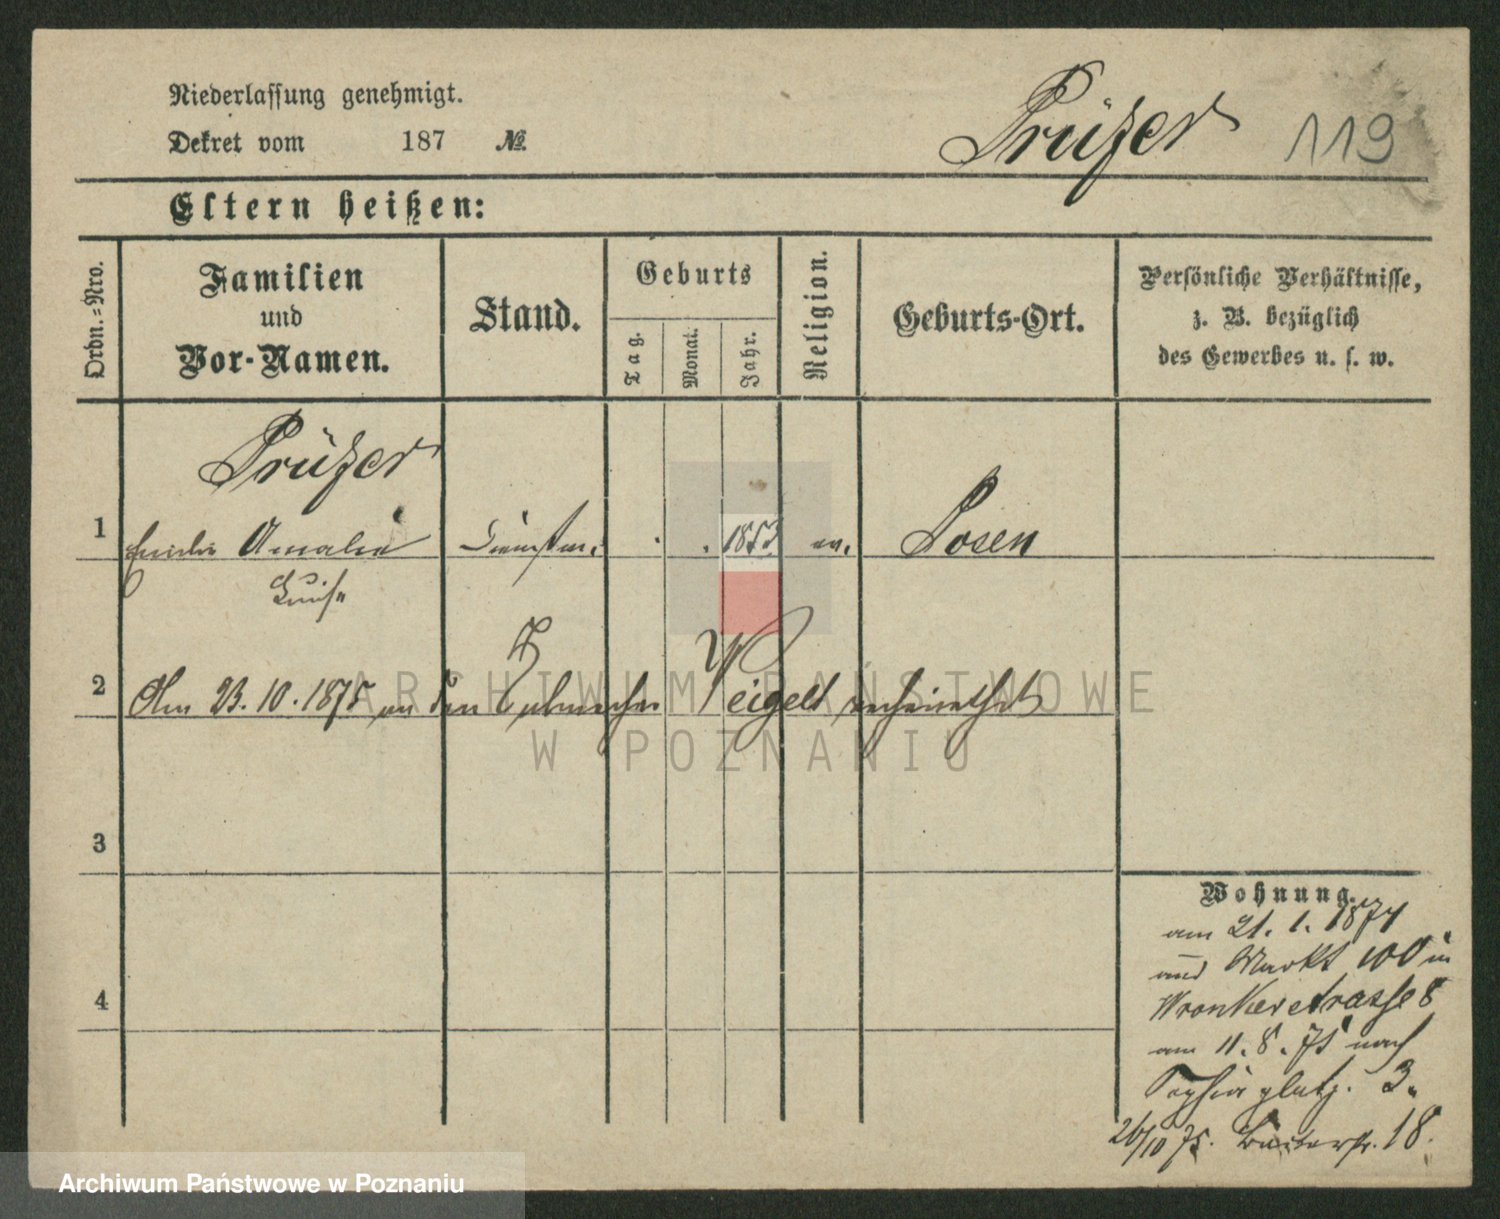 Niederlassung genehmigt.
Dekret vom 187 №
Prüfer 119
Eltern heißen:
Ordn.=Nro.
Familien
und
Vor-Namen.
Stand.
Geburts
Tag.
Monat.
Jahr.
Religion.
Geburts-Ort.
Persönliche Verhältnisse,
z. B. bezüglich
des Gewerbes u. s. w.
Prüfer
1 Emilie Amalie 1853 ev. Posen
Luise
2 Am 23.10.1875 an den Weigelt verheirathet
3
4
Wohnung.
am 21. 1. 1874
aus Markt 100 in
Wronkerstrasse 8
am 11. 8. 75 nach
Sophienplatz. 3.
26/10 75. 18.
ARCHIWUM PAŃSTWOWE
W POZNANIU
Archiwum Państwowe w Poznaniu